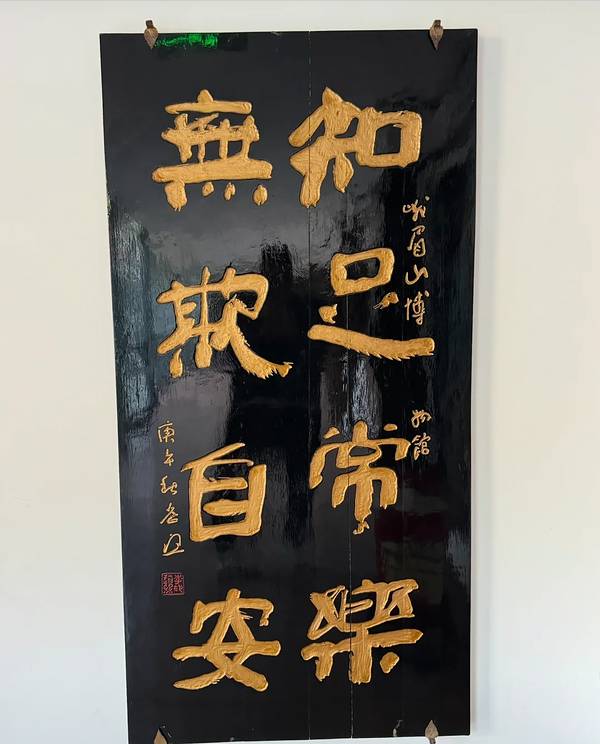 峨眉山博物館
知足常樂
無欺自安
庚午秋